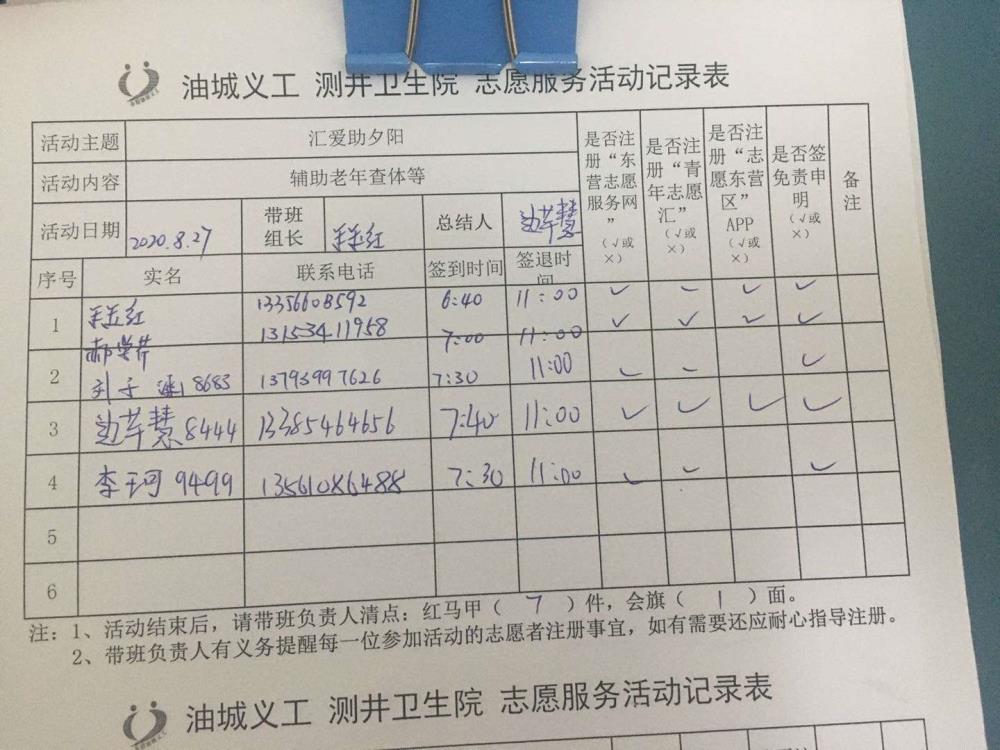 油城义工 测井卫生院 志愿服务活动记录表
活动主题 汇爱助夕阳
活动内容 辅助老年查体等
活动日期 2020.8.27 带班组长 总结人 边苹慧
是否注册“东营志愿服务网”(√或×)
是否注册“青年志愿汇”(√或×)
是否注册“志愿东营区”APP(√或×)
是否签免责申明(√或×)
备注
序号 实名 联系电话 签到时间 签退时间
1 13356608592 6:40 11:00 ✓ ✓ ✓ ✓
13153411958 7:00 11:00 ✓ ✓ ✓ ✓
2 刘子涵 8683 13793997626 7:30 11:00 ✓ ✓ ✓
3 边苹慧 8444 13385464656 7:40 11:00 ✓ ✓ ✓ ✓
4 李玉珂 9499 13561086488 7:30 11:00 ✓ ✓ ✓
5
6
注：1、活动结束后，请带班负责人清点：红马甲（ 7 ）件，会旗（ 1 ）面。
2、带班负责人有义务提醒每一位参加活动的志愿者注册事宜，如有需要还应耐心指导注册。
油城义工 测井卫生院 志愿服务活动记录表